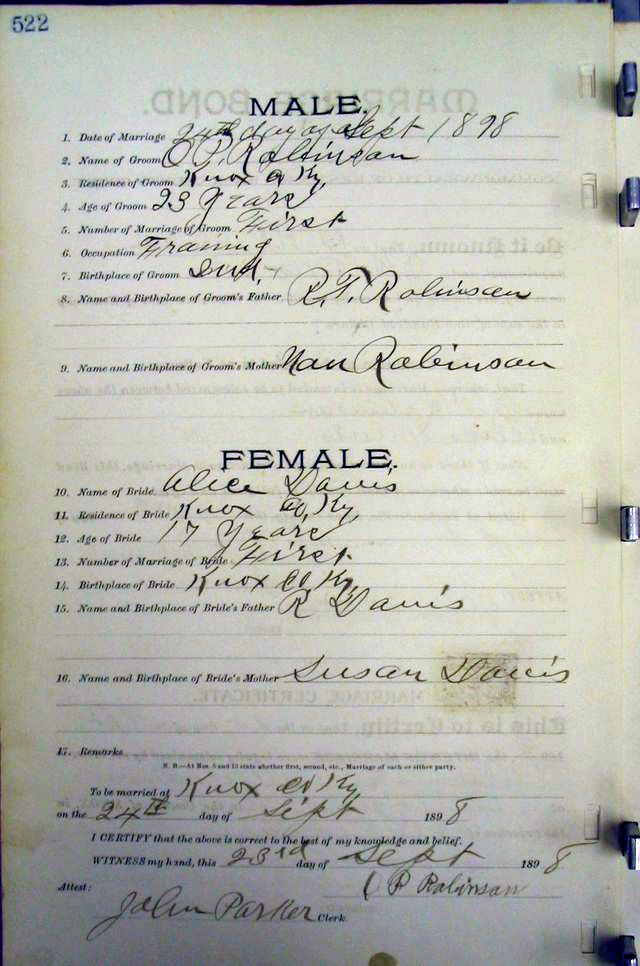 522
MALE.
1. Date of Marriage 24th day of Sept 1898
2. Name of Groom O P. Robinson
3. Residence of Groom Knox Co Ky,
4. Age of Groom 23 Years
5. Number of Marriage of Groom First
6. Occupation Framing
7. Birthplace of Groom
8. Name and Birthplace of Groom's Father R. T. Robinson
9. Name and Birthplace of Groom's Mother Nan Robinson
FEMALE.
10. Name of Bride Alice Davis
11. Residence of Bride Knox Co, Ky,
12. Age of Bride 17 Years
13. Number of Marriage of Bride First
14. Birthplace of Bride Knox Co Ky,
15. Name and Birthplace of Bride's Father R Davis
16. Name and Birthplace of Bride's Mother Susan Davis
17. Remarks
N. B.—At Nos. 5 and 13 state whether first, second, etc., Marriage of each or either party.
To be married at Knox Co Ky
on the 24th day of Sept 1898
I CERTIFY that the above is correct to the best of my knowledge and belief.
WITNESS my hand, this 23rd day of Sept 1898
Attest: O P Robinson
John Parker Clerk.